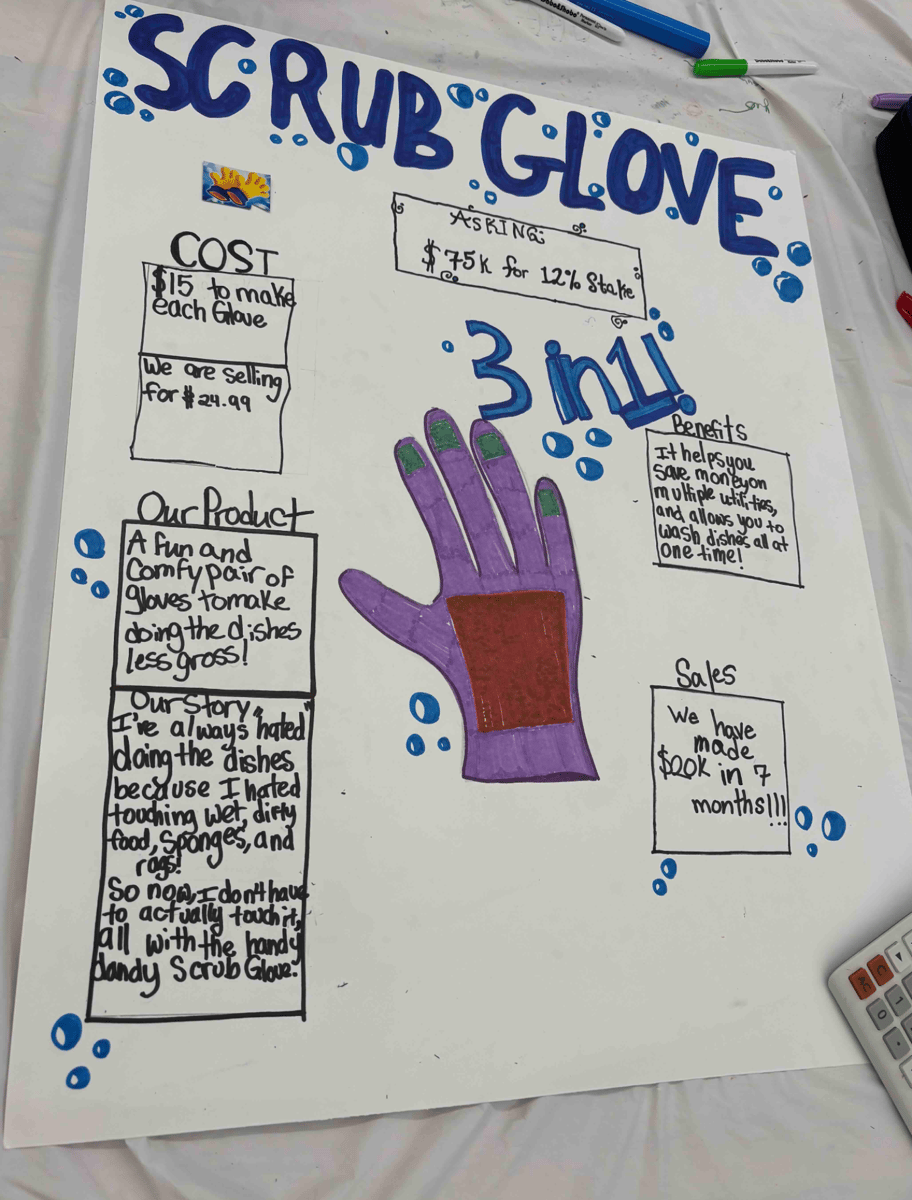 SCRUB GLOVE
ASKING:
$75K for 12% Stake
COST
$15 to make
each Glove
We are selling
for $24.99
3 in 1!
Benefits
It helps you
save money on
multiple utilities,
and allows you to
wash dishes all at
one time!
Our Product
A fun and
comfy pair of
gloves to make
doing the dishes
less gross!
Our Story
I've always "hated"
doing the dishes
because I hated
touching wet, dirty
food, sponges, and
rags!
So now, I don't have
to actually touch it,
all with the handy
dandy Scrub Glove!
Sales
We have
made
$20K in 7
months!!!
C
AC
7
0